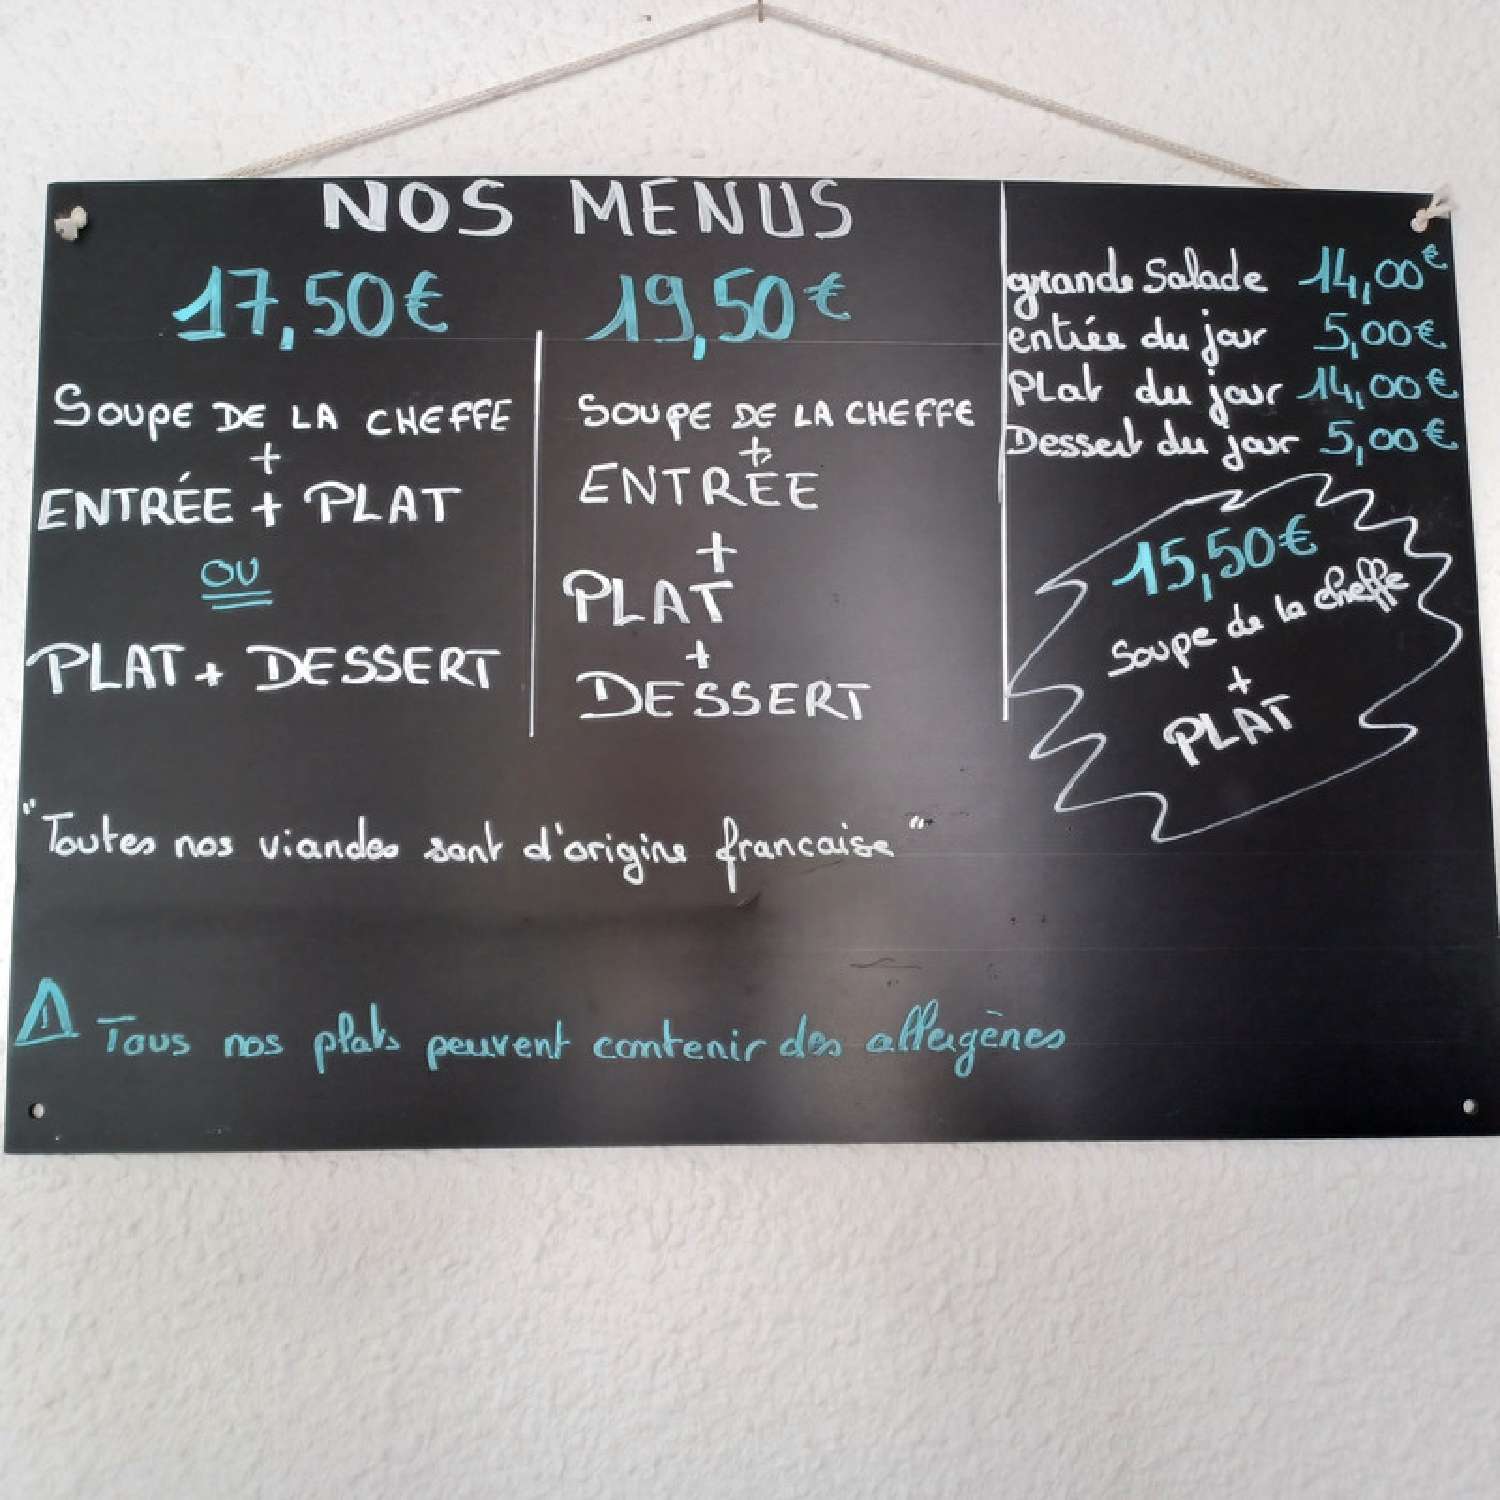 NOS MENUS
17,50€
SOUPE DE LA CHEFFE
+
ENTRÉE + PLAT
OU
PLAT + DESSERT
19,50€
SOUPE DE LA CHEFFE
+
ENTRÉE
+
PLAT
+
DESSERT
grande Salade 14,00€
entrée du jour 5,00€
PLat du jour 14,00€
Dessert du jour 5,00€
15,50€
Soupe de la cheffe
+
PLAT
"Toutes nos viandes sont d'origine francaise"
⚠ Tous nos plats peuvent contenir des allergènes